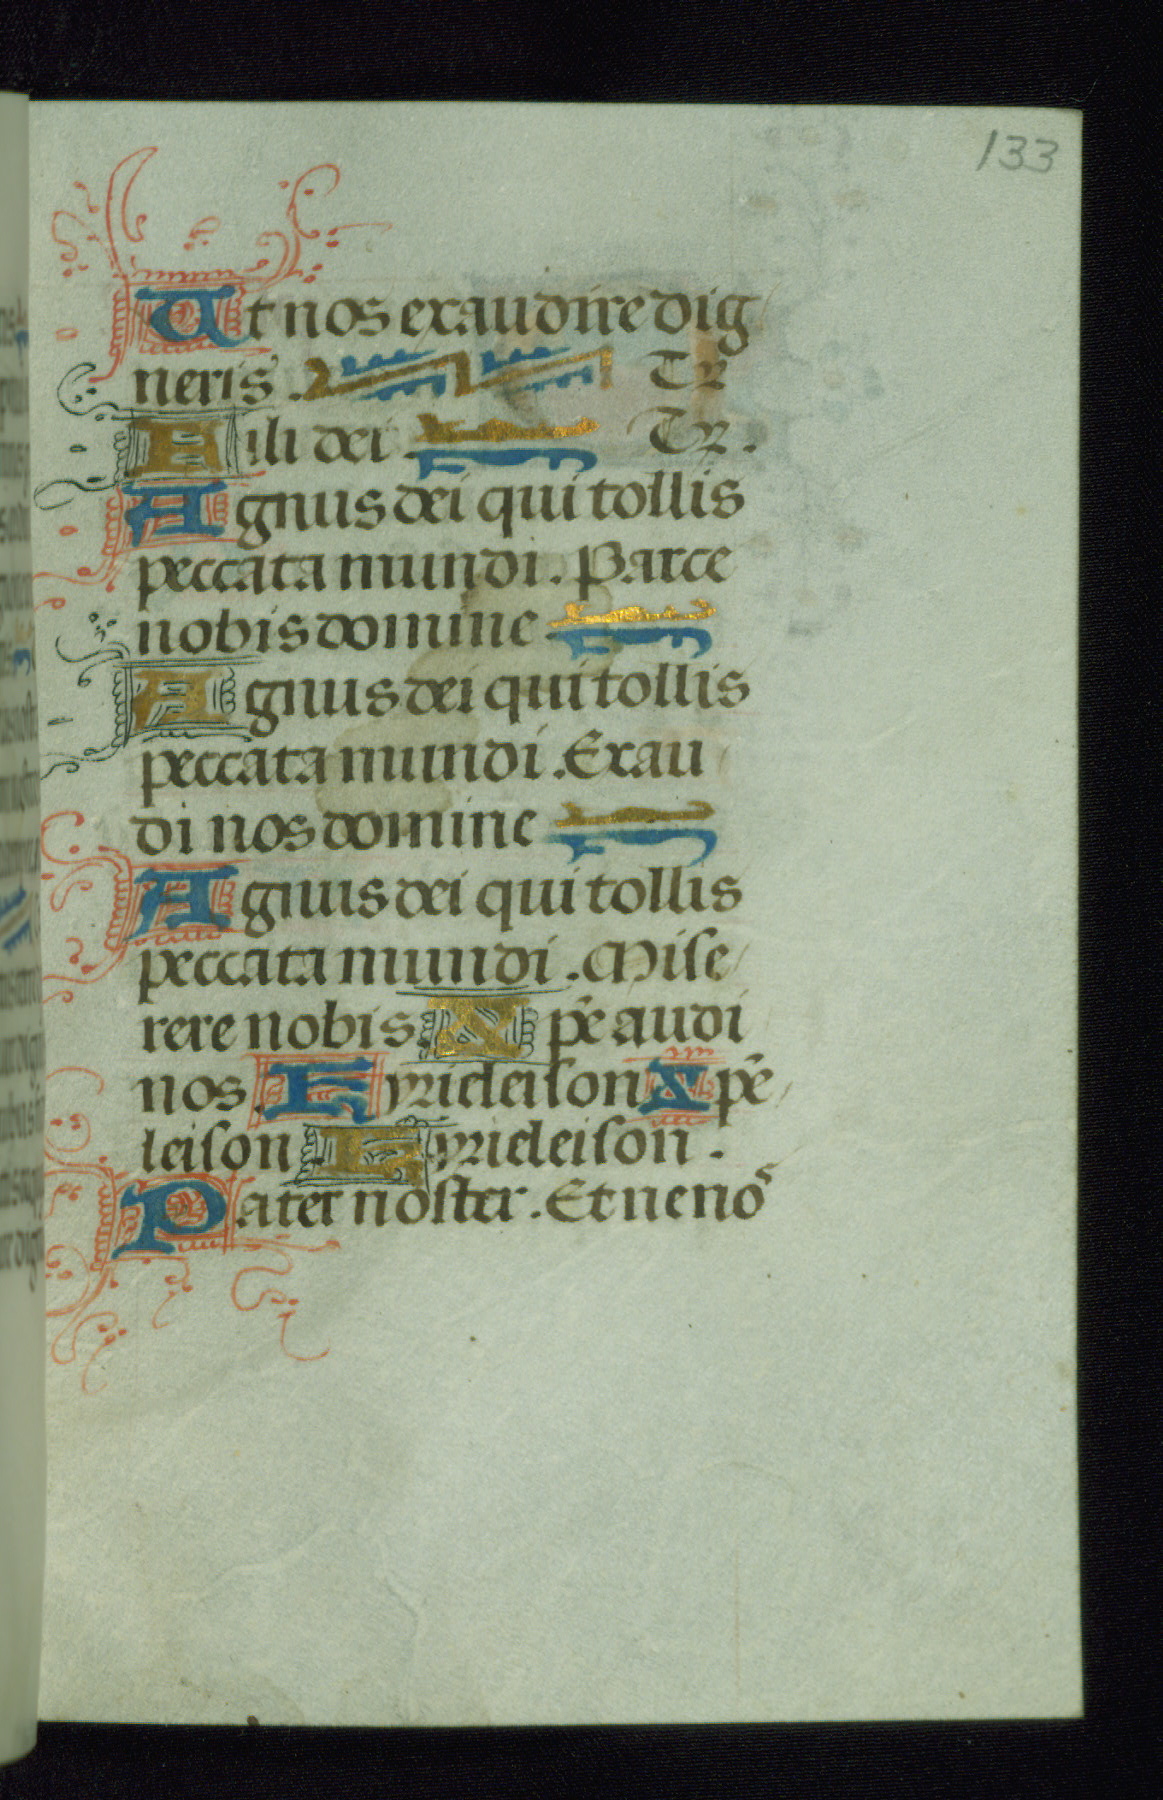 133
Ut nos exaudire dig
neris. TR
Fili dei TR.
Agnus dei qui tollis
peccata mundi. Parce
nobis domine
Agnus dei qui tollis
peccata mundi. Exau
di nos domine
Agnus dei qui tollis
peccata mundi. Mise
rere nobis. Xp̄e audi
nos. Kyrieleiſon Xp̄e
leiſon. Kyrieleiſon.
Pater noſter. Et ne nos